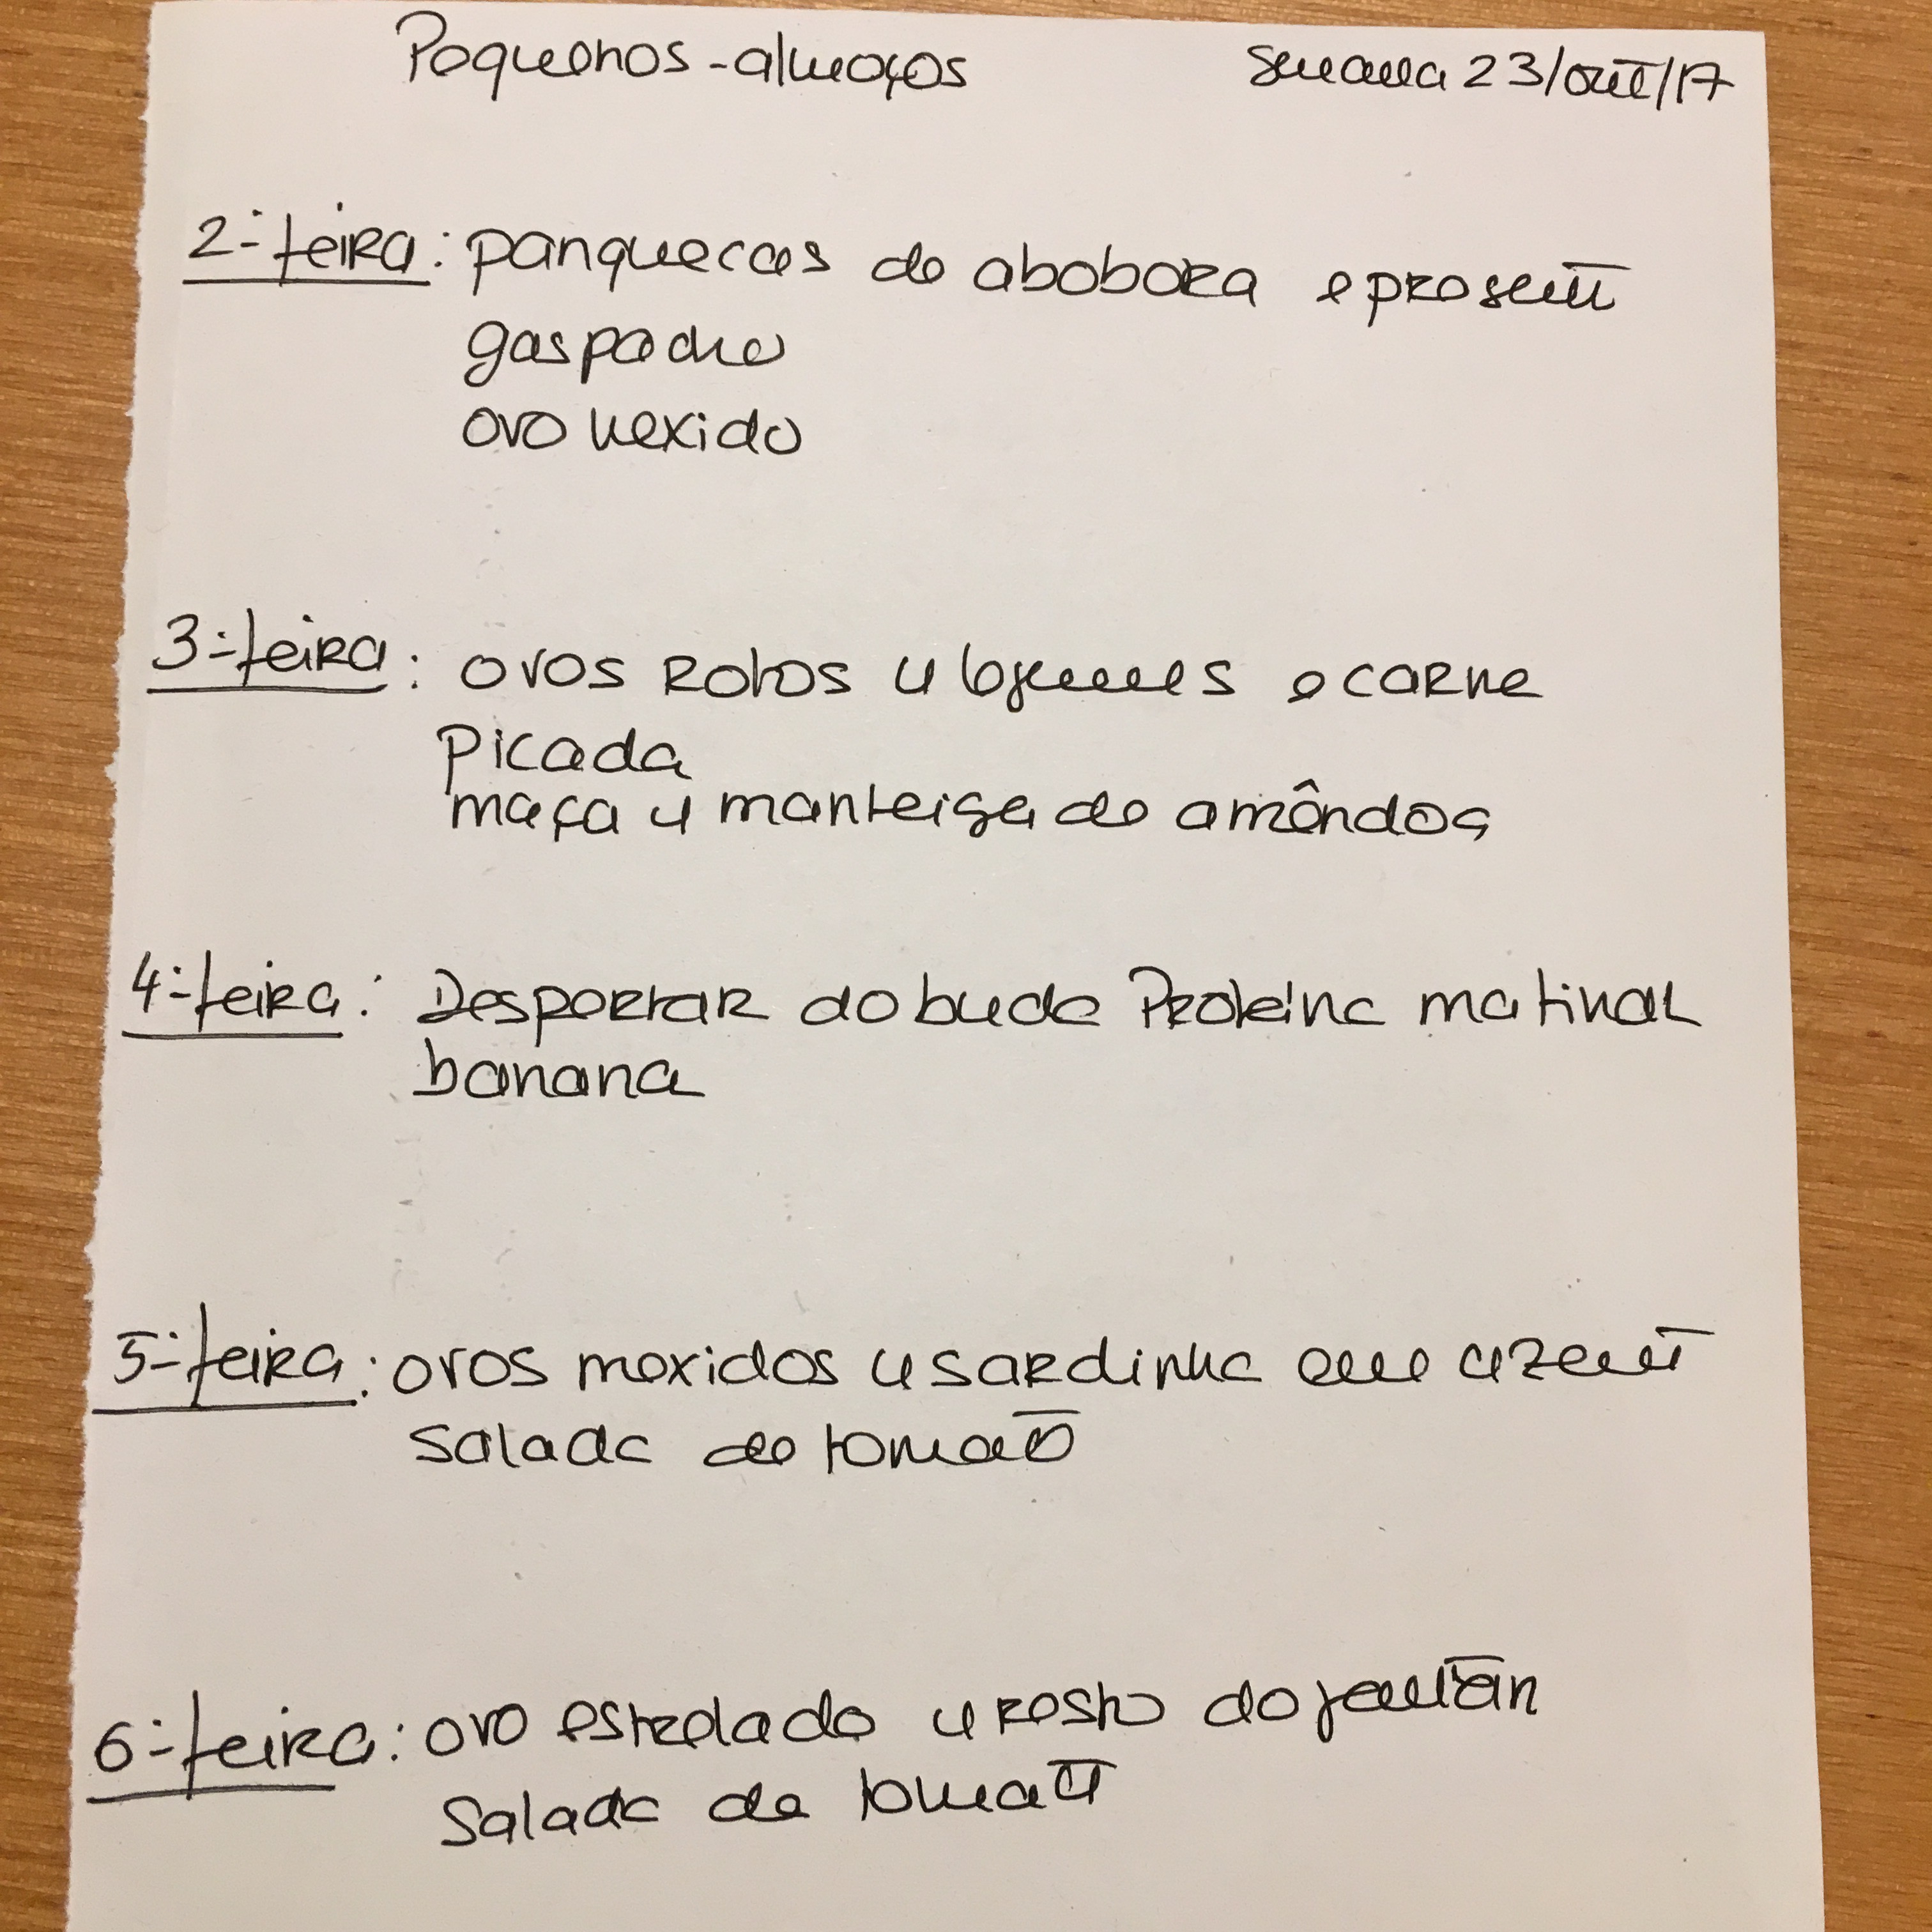 Pequenos-almoços semana 23/out/17
2ª-feira: panquecas de abobora e presunto
gaspacho
ovo mexido
3ª-feira: ovos rotos c/ legumes e carne
picada
maçã c/ manteiga de amêndoa
4ª-feira: Despertar do buda Proteína matinal
banana
5ª-feira: ovos mexidos c/ sardinha em azeite
salada de tomate
6ª-feira: ovo estrelado c/ resto do jantar
Salada de tomate